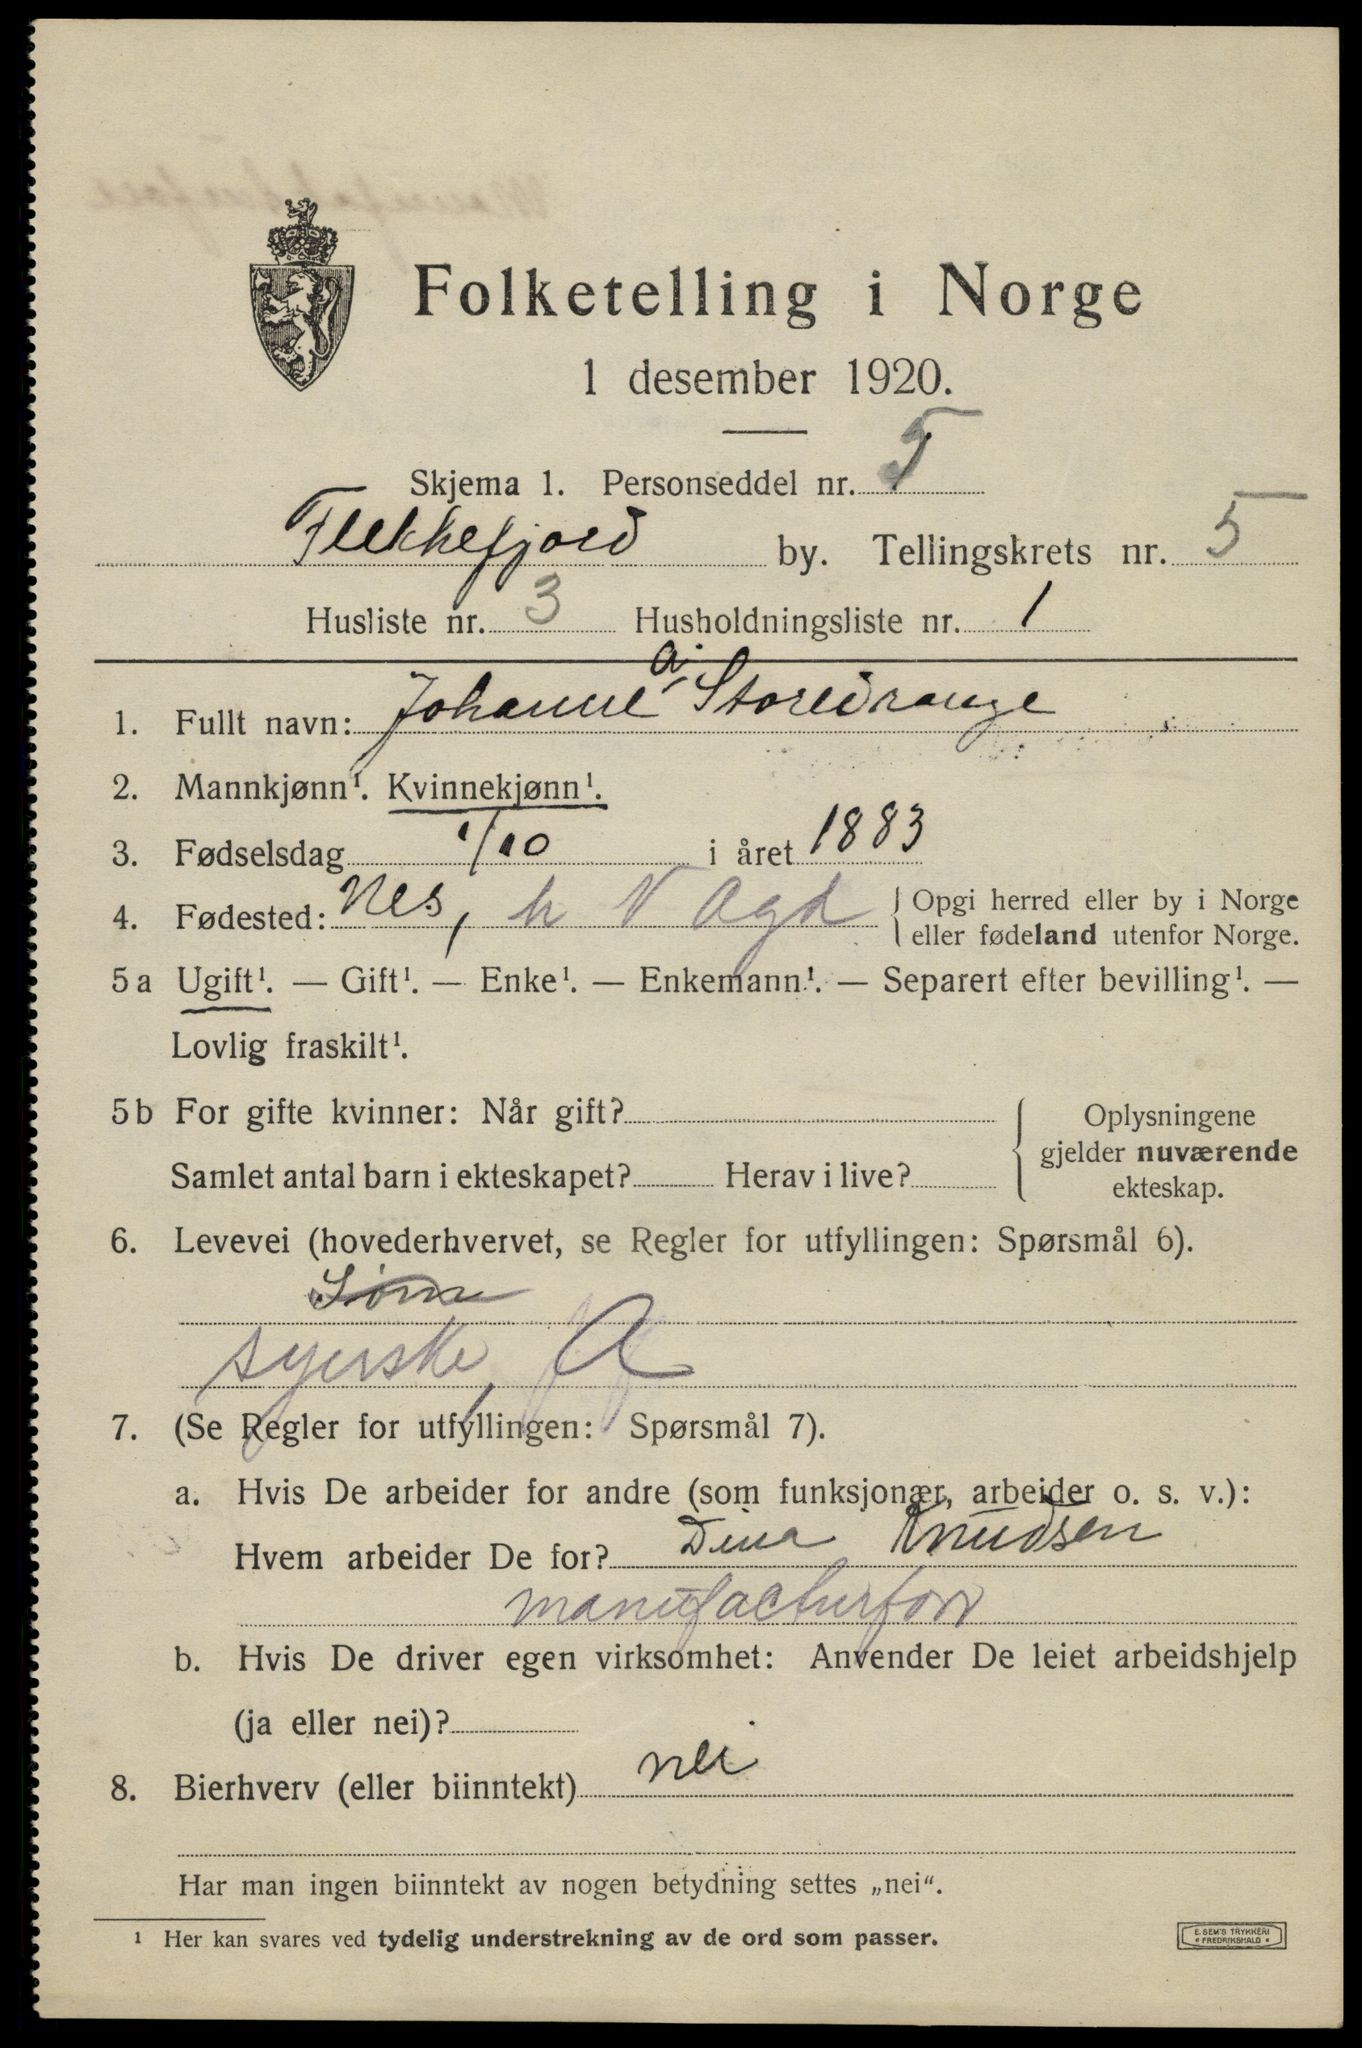 Folketelling i Norge
1 desember 1920.
Skjema 1. Personseddel nr. 5
Flekkefjord by. Tellingskrets nr. 5
Husliste nr. 3 Husholdningsliste nr. 1
1. Fullt navn: Johanne A. Storedrange
2. Mannkjønn¹. Kvinnekjønn¹.
3. Fødselsdag 1/10 i året 1883
4. Fødested: Nes, h V Agd { Opgi herred eller by i Norge
eller fødeland utenfor Norge.
5a Ugift¹. — Gift¹. — Enke¹. — Enkemann¹. — Separert efter bevilling¹. —
Lovlig fraskilt¹.
5b For gifte kvinner: Når gift?
Samlet antal barn i ekteskapet? Herav i live?
Oplysningene
gjelder nuværende
ekteskap.
6. Levevei (hovederhvervet, se Regler for utfyllingen: Spørsmål 6).
syerske, A
7. (Se Regler for utfyllingen: Spørsmål 7).
a. Hvis De arbeider for andre (som funksjonær, arbeider o. s. v.):
Hvem arbeider De for? Dina Knudsen
manufacturforr
b. Hvis De driver egen virksomhet: Anvender De leiet arbeidshjelp
(ja eller nei)?
8. Bierhverv (eller biinntekt) nei
Har man ingen biinntekt av nogen betydning settes „nei“.
¹ Her kan svares ved tydelig understrekning av de ord som passer.
E. SEM'S TRYKKERI
FREDRIKSHALD